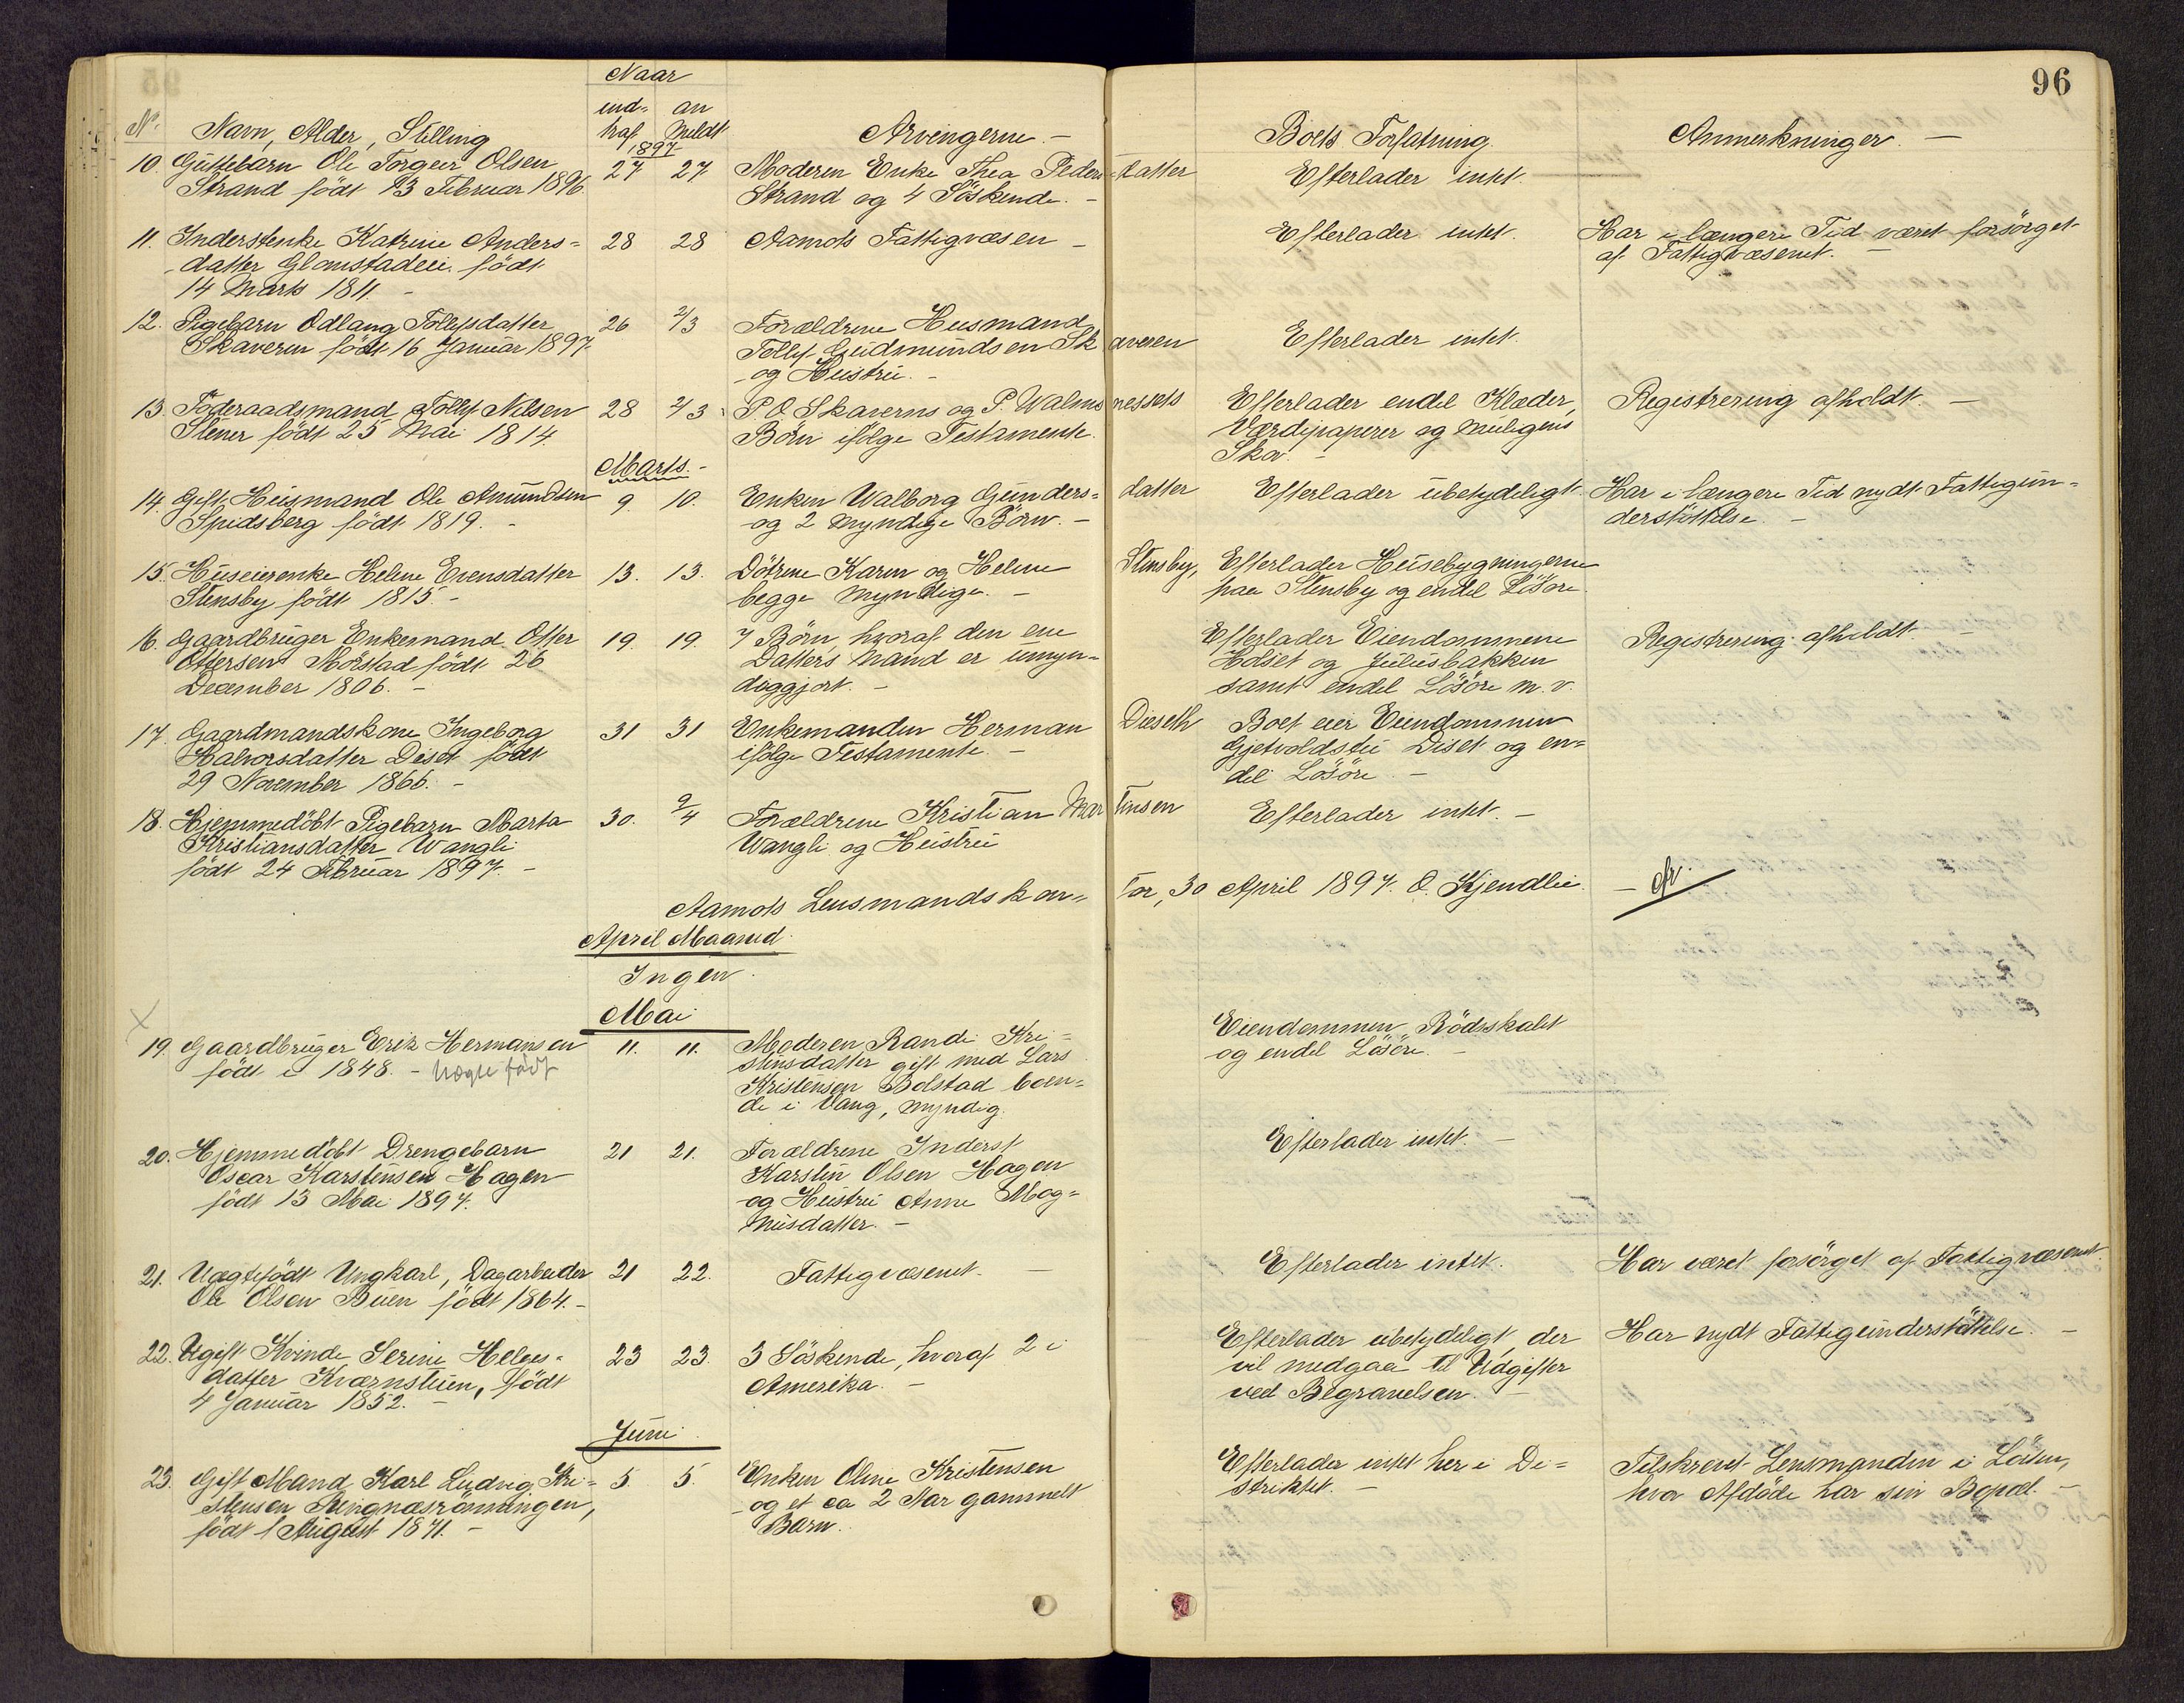 96
Naar
ind= an
traf meldt
1897
No. Navn, Alder, Stilling Arvingerne. - Boets Forfatning. Anmerkninger. -
10. Guttebarn Ole Torgeir Olsen 27 27 Moderen Enke Thea Peders=datter Efterlader intet.
Strand født 13 Februar 1896. Strand og 4 Söskende. -
11. Inderstenke Katrine Anders= 28 28 Aamots Fattigvæsen - Efterlader intet. Har i længere Tid været forsörget
datter Glomstadeie født af Fattigvæsenet. -
14 Marts 1811. -
12. Pigebarn Odlaug Tollefsdatter 26 2/3 Forældrene Husmand Efterlader intet.
Skaveren født 16 Januar 1897. Tollef Gudmundsen Skaveren
og Hustru. -
13. Föderaadsmand Tollef Nilsen 28 2/3 P O Skaverens og P. Walmsnessets Efterlader endel Klæder, Registrering afholdt. -
Stener født 25 Mai 1814 Börn ifölge Testamente. Værdipapirer og muligens
Skov. -
Marts. -
14. Gift Husmand Ole Amundsen 9. 10. Enken Walborg Gunders=datter Efterlader ubetydeligt. Har i længere Tid nydt Fattigun=
Spidsberg født 1819. - og 2 myndige Börn. - derstöttelse. -
15. Huseierenke Helene Evensdatter 13. 13. Dötrene Karen og Helene Stensby, Efterlader Husebygningerne
Stensby født 1815. - begge myndige. - paa Stensby og endel Lösöre.
16. Gaardbruger Enkemand Otter 19. 19. 7 Börn, hvoraf den ene Efterlader Eiendommene Registrering afholdt. -
Ottersen Mörstad født 26 Datters Mand er umyn= Holset og Juliusbakken
December 1806. - diggjort. - samt endel Lösöre m. v.
17. Gaardmandskone Ingeborg 31 31 Enkemanden Herman Diseth Boet eier Eiendommen
Halvorsdatter Diset født ifölge Testamente. - Gjetvoldstu Diset og en=
29 November 1866. - del Lösöre. -
18. Hjemmedöbt Pigebarn Marta 30. 9/4 Forældrene Kristian Martinsen Efterlader intet. -
Kristiansdatter Wangli Wangli og Hustru
født 24 Februar 1897. -
Aamots Lensmandskon=tor, 30 April 1897. O. Kjendlie.
April Maaned.
Ingen.
Mai
19. Gaardbruger Erik Hermansen 11. 11. Moderen Randi Kri= Eiendommen Rödsskalet
født i 1848. - uægte født stinsdatter gift med Lars og endel Lösöre. -
Kristensen Bolstad boen=
de i Vang, myndig.
20. Hjemmedöbt Drengebarn 21 21. Forældrene Inderst Efterlader intet. -
Oscar Karstensen Hagen Karstin Olsen Hagen
født 13 Mai 1897. og Hustru Anne Mag=
nusdatter. -
21. Uægtefödt Ungkarl, Dagarbeider 21 22. Fattigvæsenet. - Efterlader intet. Har været forsörget af Fattigvæsenet.
Ole Olsen Buen født 1864. -
22. Ugift Kvinde Serine Helges= 23 23. 3 Söskende, hvoraf 2 i Efterlader ubetydeligt, der Har nydt Fattigunderstöttelse. -
datter Kværnstuen, født Amerika. - vil medgaa til Udgifter
4 Januar 1852. - ved Begravelsen. -
Juni.
23. Gift Mand Karl Ludvig Kri= 5 5. Enken Oline Kristensen Efterlader intet her i Di= Tilskrevet Lensmanden i Löiten,
stensen Stengnæsrönningen, og et ca 2 Aar gammelt striktet. - hvor Afdöde har sin Bopæl. -
født 1 August 1871. - Barn.